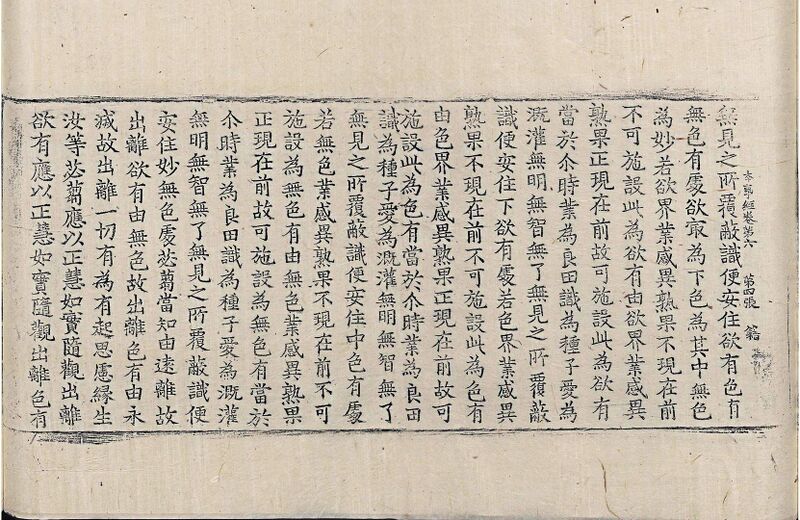 本事經卷第六　第四張　籍
無見之所覆蔽識便安住欲有色有
無色有處欲㝡為下色為其中無色
為妙若欲界業感異熟果不現在前
不可施設此為欲有由欲界業感異
熟果正現在前故可施設此為欲有
當於尒時業為良田識為種子愛為
溉灌無明無智無了無見之所覆蔽
識便安住下欲有處若色界業感異
熟果不現在前不可施設此為色有
由色界業感異熟果正現在前故可
施設此為色有當於尒時業為良田
識為種子愛為溉灌無明無智無了
無見之所覆蔽識便安住中色有處
若無色業感異熟果不現在前不可
施設為無色有由無色業感異熟果
正現在前故可施設為無色有當於
尒時業為良田識為種子愛為溉灌
無明無智無了無見之所覆蔽識便
安住妙無色處苾芻當知由遠離故
出離欲有由無色故出離色有由永
滅故出離一切有為有起思慮緣生
汝等苾芻應以正慧如實隨觀出離
欲有應以正慧如實隨觀出離色有